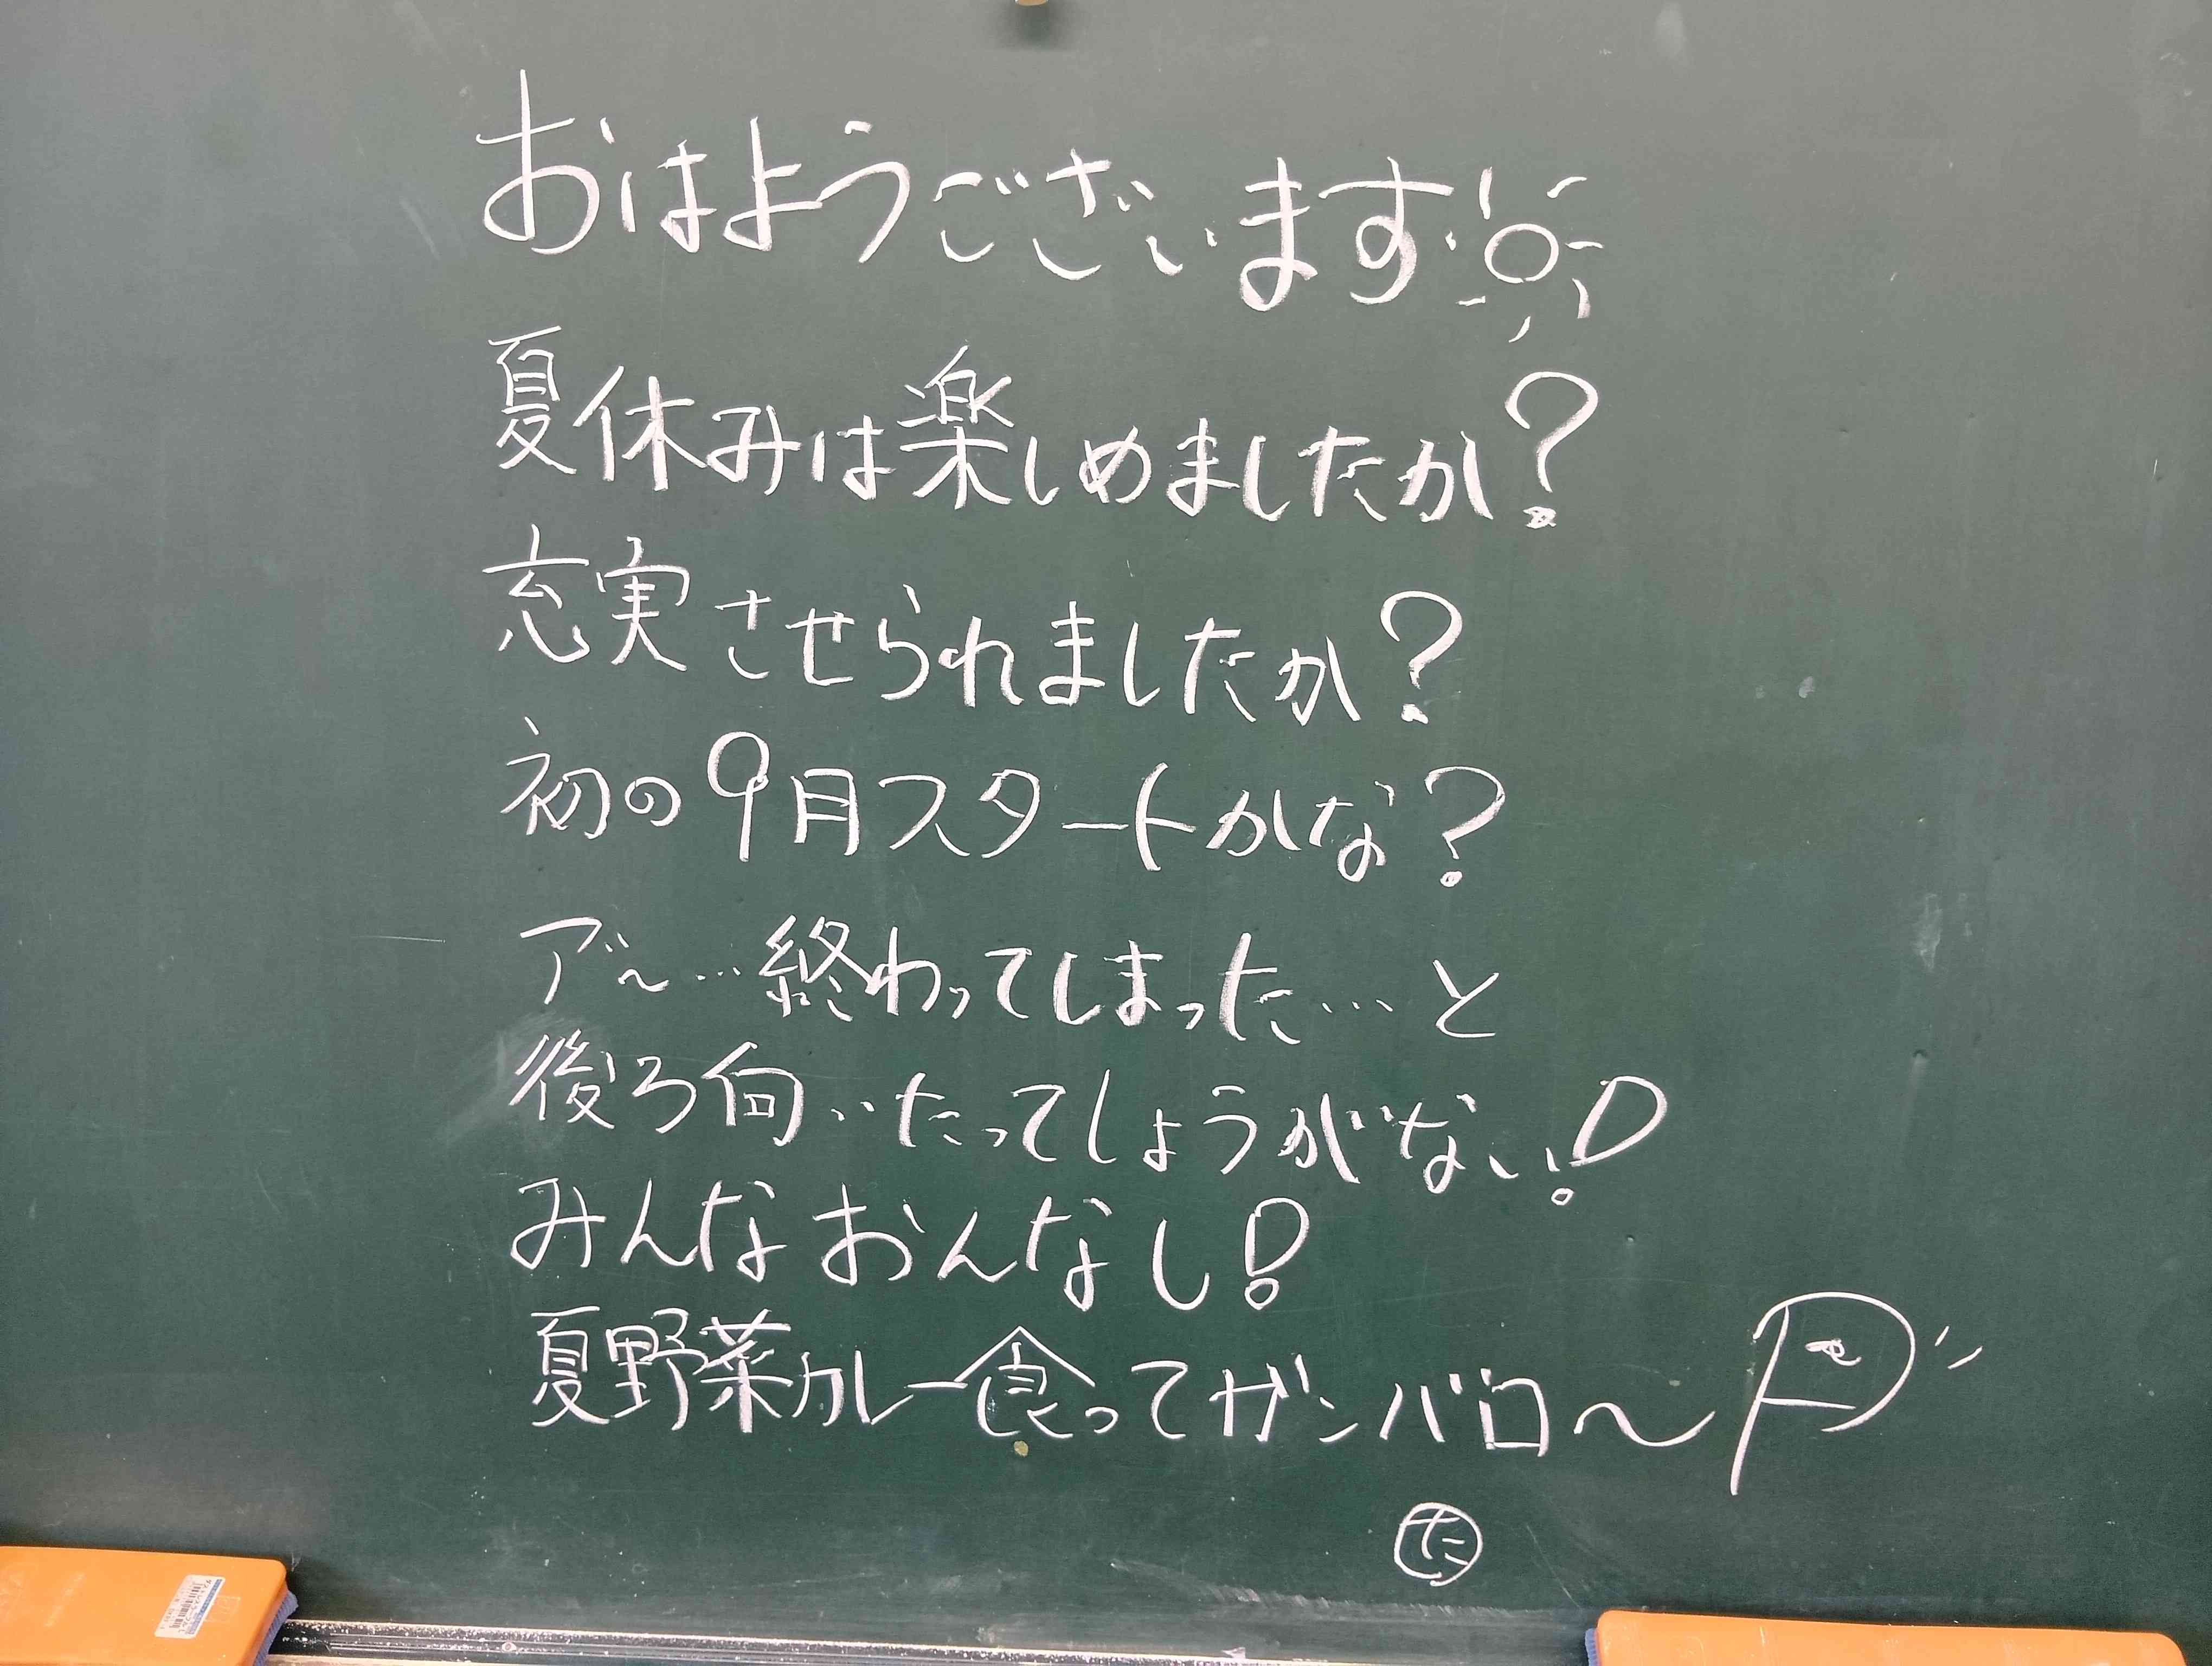 おはようございます
夏休みは楽しめましたか?
充実させられましたか?
初の9月スタートかな?
ア゛〜…終わってしまった…と
後ろ向いたってしょうがない!
みんなおんなし!
夏野菜カレー食ってガンバロ〜
た